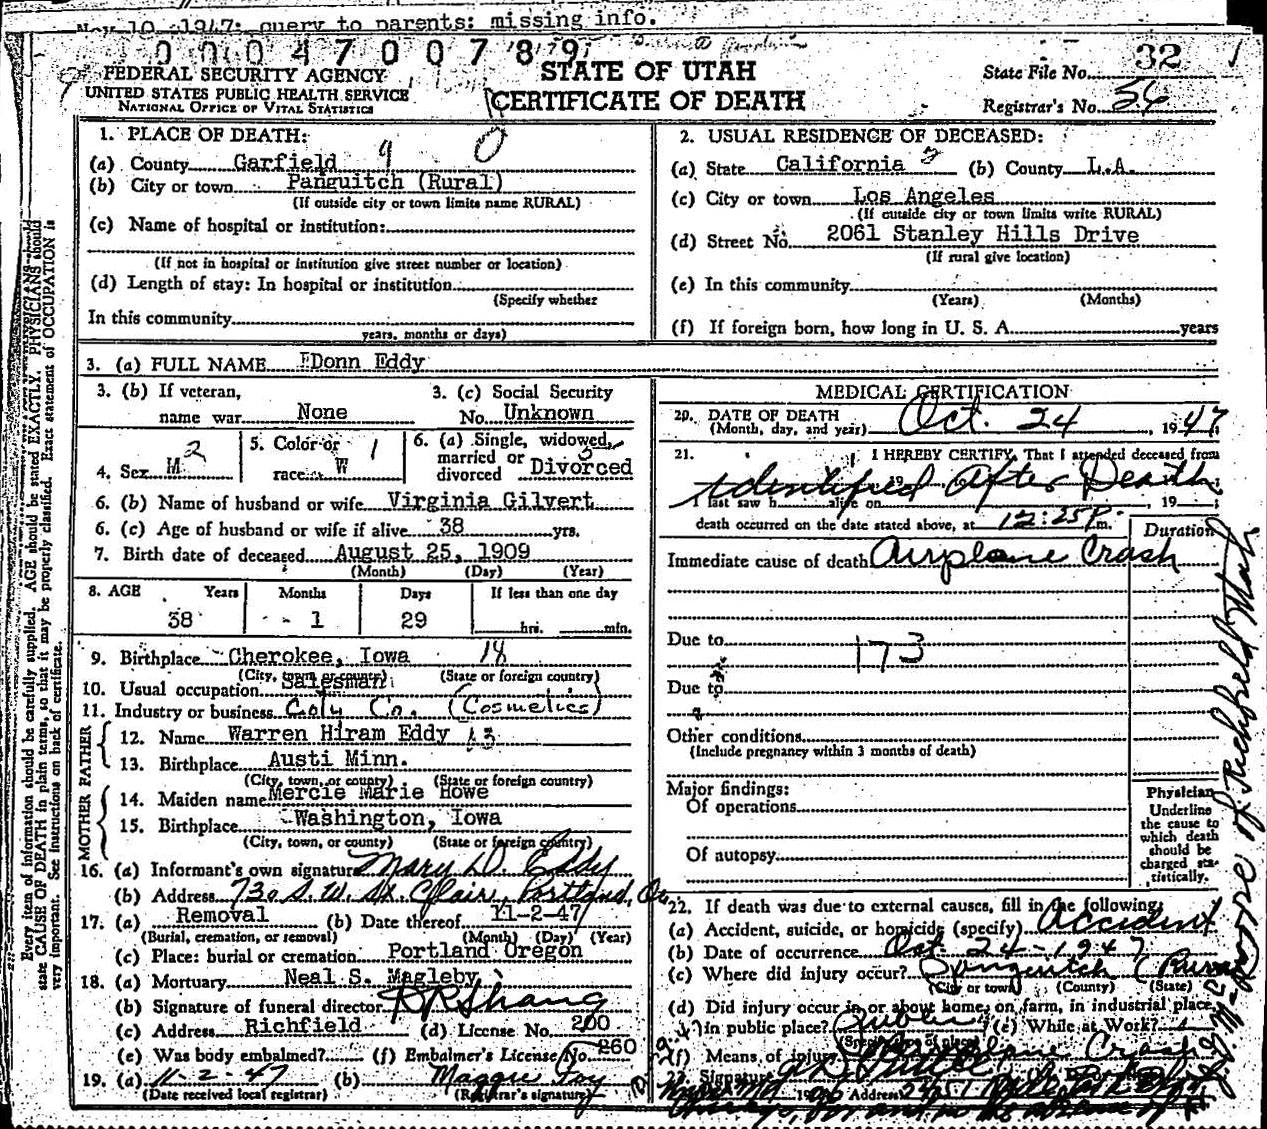 Nov 10, 1947: query to parents: missing info.
0 0 0 4 7 0 0 7 8 9
FEDERAL SECURITY AGENCY
UNITED STATES PUBLIC HEALTH SERVICE
NATIONAL OFFICE OF VITAL STATISTICS
STATE OF UTAH
CERTIFICATE OF DEATH
State File No. 32
Registrar's No. 56
1. PLACE OF DEATH:
(a) County Garfield 9
(b) City or town Panguitch (Rural)
(If outside city or town limits name RURAL)
(c) Name of hospital or institution:
(If not in hospital or institution give street number or location)
(d) Length of stay: In hospital or institution
(Specify whether
In this community
years, months or days)
2. USUAL RESIDENCE OF DECEASED:
(a) State California (b) County L.A.
(c) City or town Los Angeles
(If outside city or town limits write RURAL)
(d) Street No. 2061 Stanley Hills Drive
(If rural give location)
(e) In this community
(Years) (Months)
(f) If foreign born, how long in U. S. A. years
3. (a) FULL NAME Donn Eddy
3. (b) If veteran,
name war None
3. (c) Social Security
No. Unknown
4. Sex M 2
5. Color or 1
race W
6. (a) Single, widowed,
married or
divorced Divorced
6. (b) Name of husband or wife Virginia Gilvert
6. (c) Age of husband or wife if alive 38 yrs.
7. Birth date of deceased August 25, 1909
(Month) (Day) (Year)
8. AGE Years Months Days If less than one day
38 1 29 hrs. min.
9. Birthplace Cherokee, Iowa 18
(City, town or county) (State or foreign country)
10. Usual occupation Salesman
11. Industry or business Coty Co. (Cosmetics)
FATHER
12. Name Warren Hiram Eddy 13
13. Birthplace Austi Minn.
(City, town, or county) (State or foreign country)
MOTHER
14. Maiden name Mercie Marie Howe
15. Birthplace Washington, Iowa
(City, town, or county) (State or foreign country)
16. (a) Informant's own signature Mary D. Eddy
(b) Address 730 S.W. St. Clair, Portland, Or.
17. (a) Removal (b) Date thereof 11-2-47
(Burial, cremation, or removal) (Month) (Day) (Year)
(c) Place: burial or cremation Portland Oregon
18. (a) Mortuary Neal S. Magleby
(b) Signature of funeral director
(c) Address Richfield (d) License No. 200
(e) Was body embalmed? (f) Embalmer's License No. 260
19. (a) 11-2-47 (b) Maggie Foy
(Date received local registrar) (Registrar's signature)
MEDICAL CERTIFICATION
20. DATE OF DEATH
(Month, day, and year) Oct. 24, 1947
21. I HEREBY CERTIFY, That I attended deceased from
Identified After Death
I last saw h alive on , 19
death occurred on the date stated above, at 12:25 P. m.
Duration
Immediate cause of death Airplane Crash
Due to
173
Due to
Other conditions
(Include pregnancy within 3 months of death)
Major findings:
Of operations
Of autopsy
Physician
Underline
the cause to
which death
should be
charged sta-
tistically.
22. If death was due to external causes, fill in the following:
(a) Accident, suicide, or homicide (specify) Accident
(b) Date of occurrence Oct 24-1947
(c) Where did injury occur? Panguitch (Rural
(City or town) (County) (State)
(d) Did injury occur in or about home, on farm, in industrial place,
in public place? Public (e) While at Work?
(Specify type of place)
(f) Means of injury Airplane Crash
23. Signature
Address
Every item of information should be carefully supplied. AGE should be stated EXACTLY. PHYSICIANS should
state CAUSE OF DEATH in plain terms, so that it may be properly classified. Exact statement of OCCUPATION is
very important. See instructions on back of certificate.
of Richfield Utah